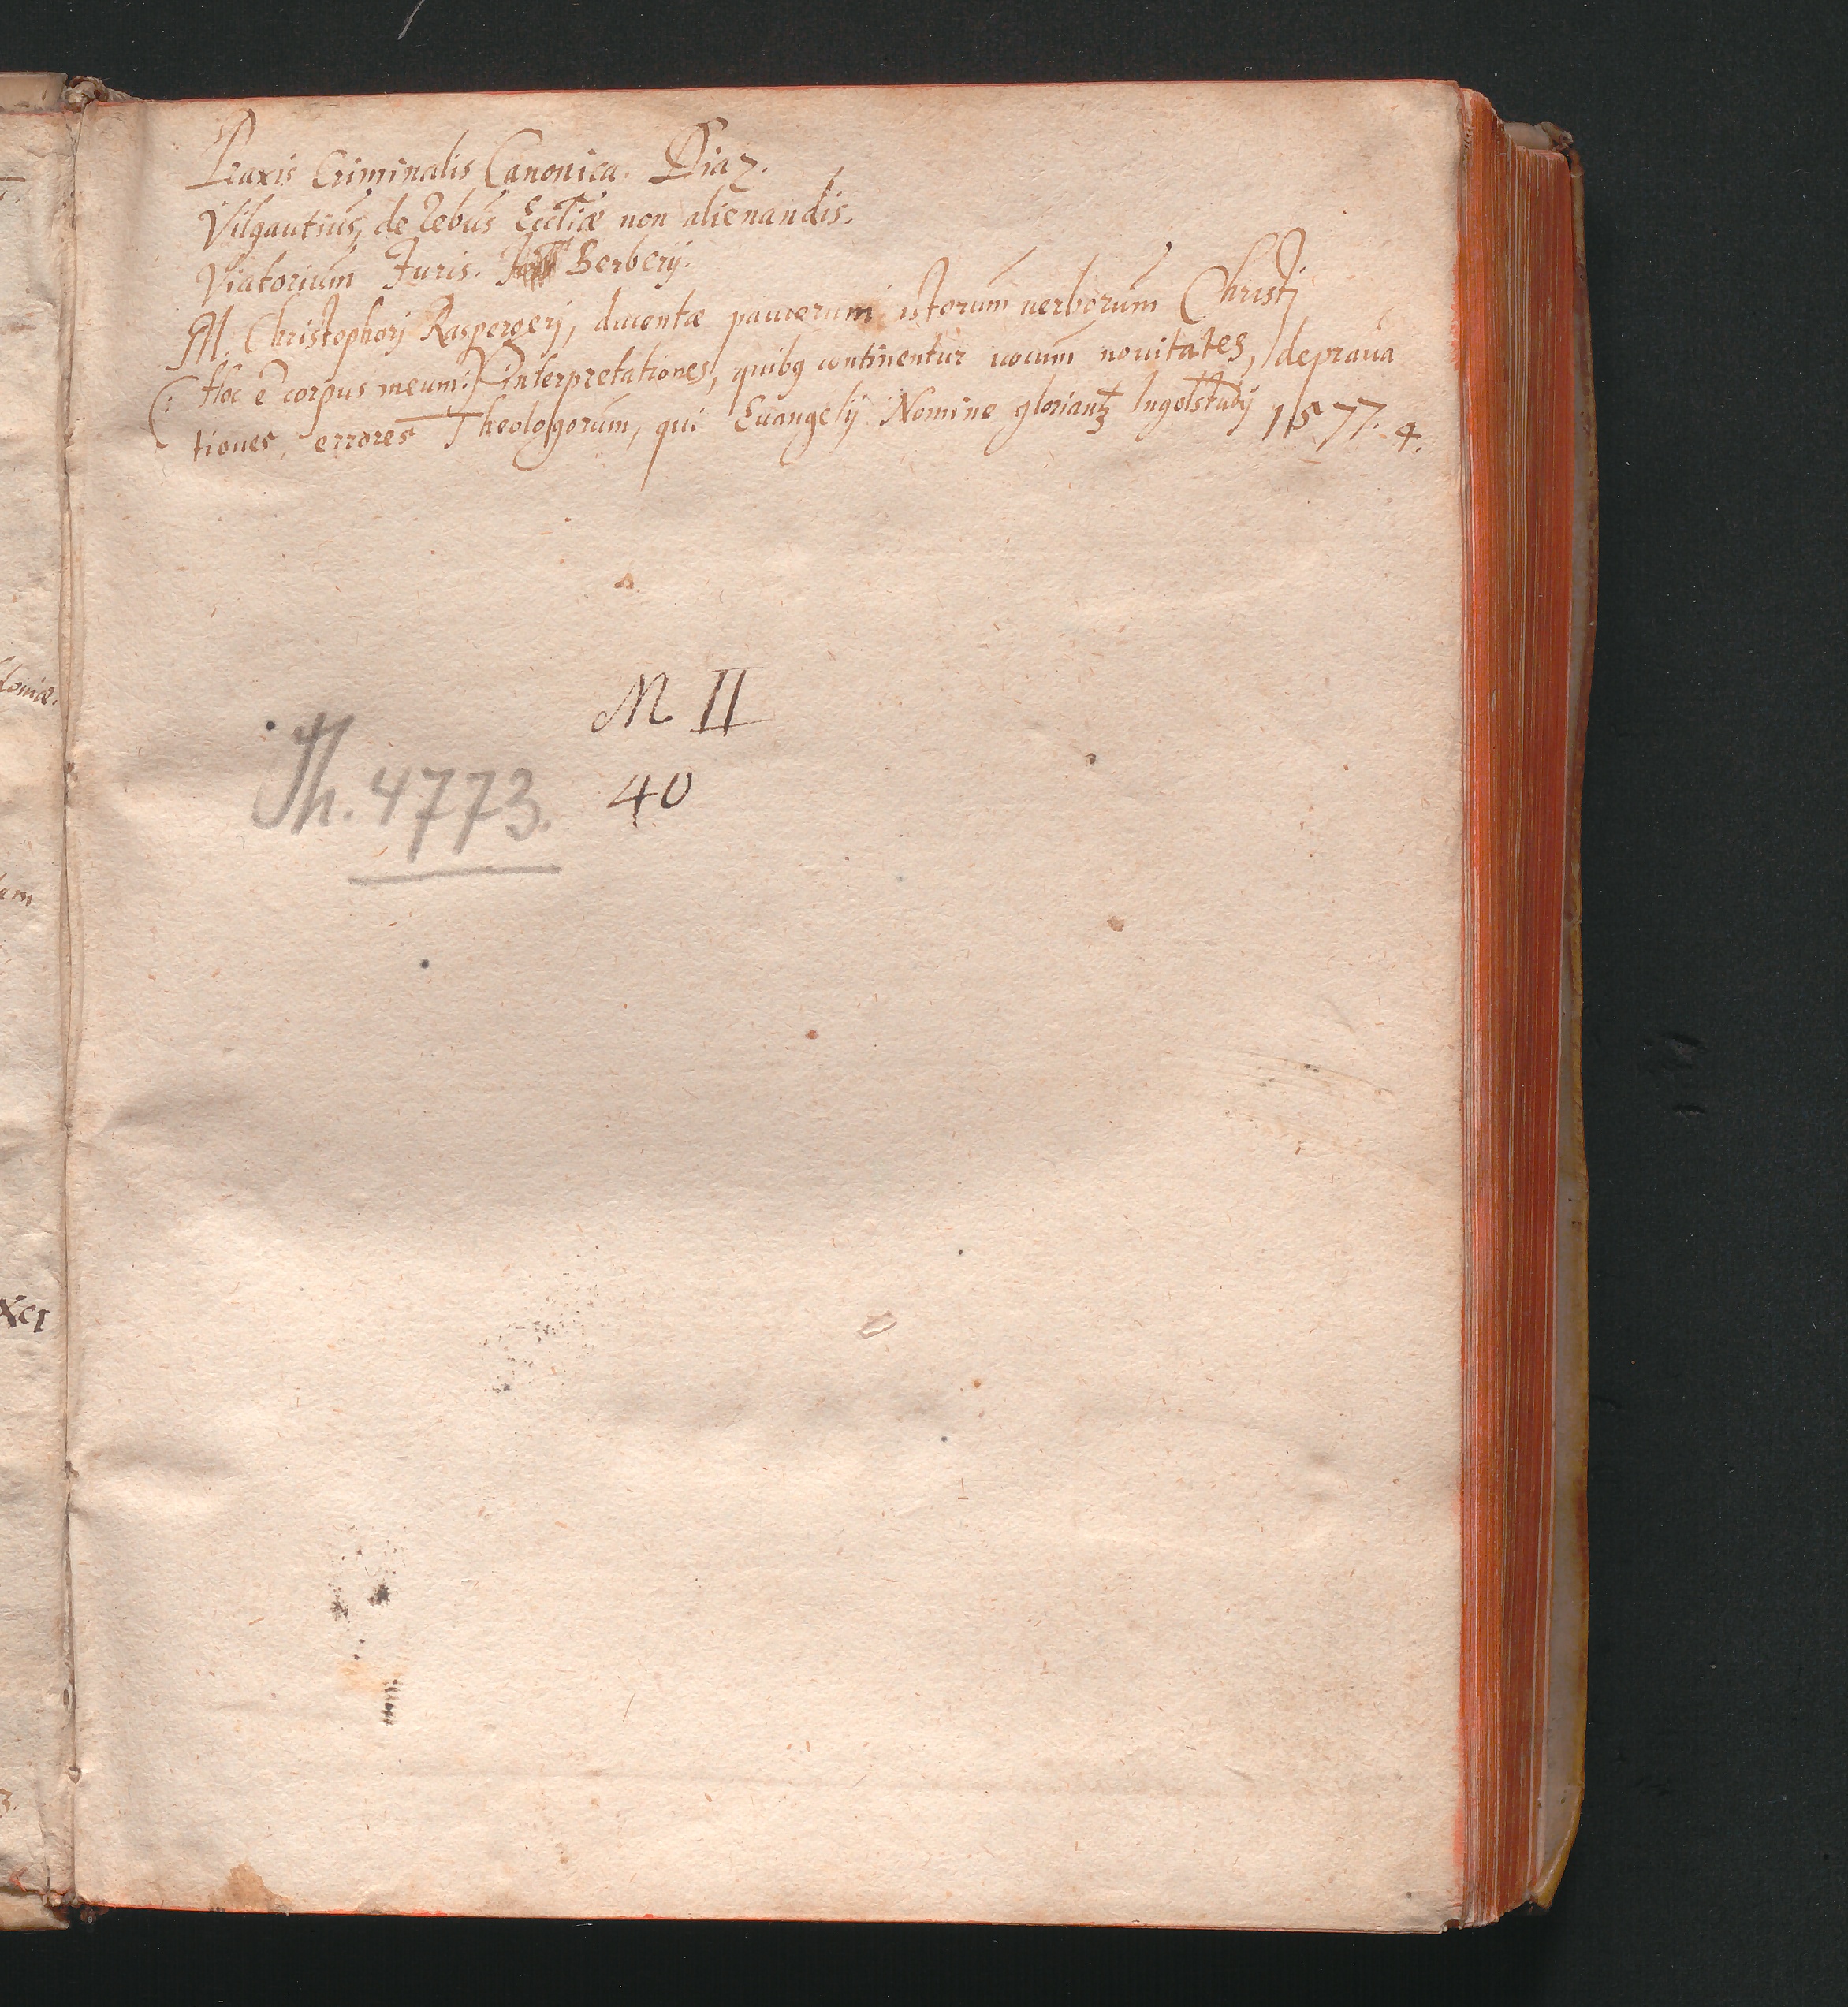 Praxis Criminalis Canonica. Diaz.
Vilgautius, de rebus Eccliæ non alienandis.
Viatorium Juris. Berberij.
M. Christophorj Raspergerj, ducentæ paucorum istorum uerborum Christj
(: Hoc ē corpus meum :) interpretationes, quibꝯ continentur uocum nouitates, depraua
tiones, errores Theologorum, qui Euangelij Nomine gloriantꝛ Ingolstadij 1577. 4.
M II
Th. 4773.
40
loniæ.
em
XCI
3.